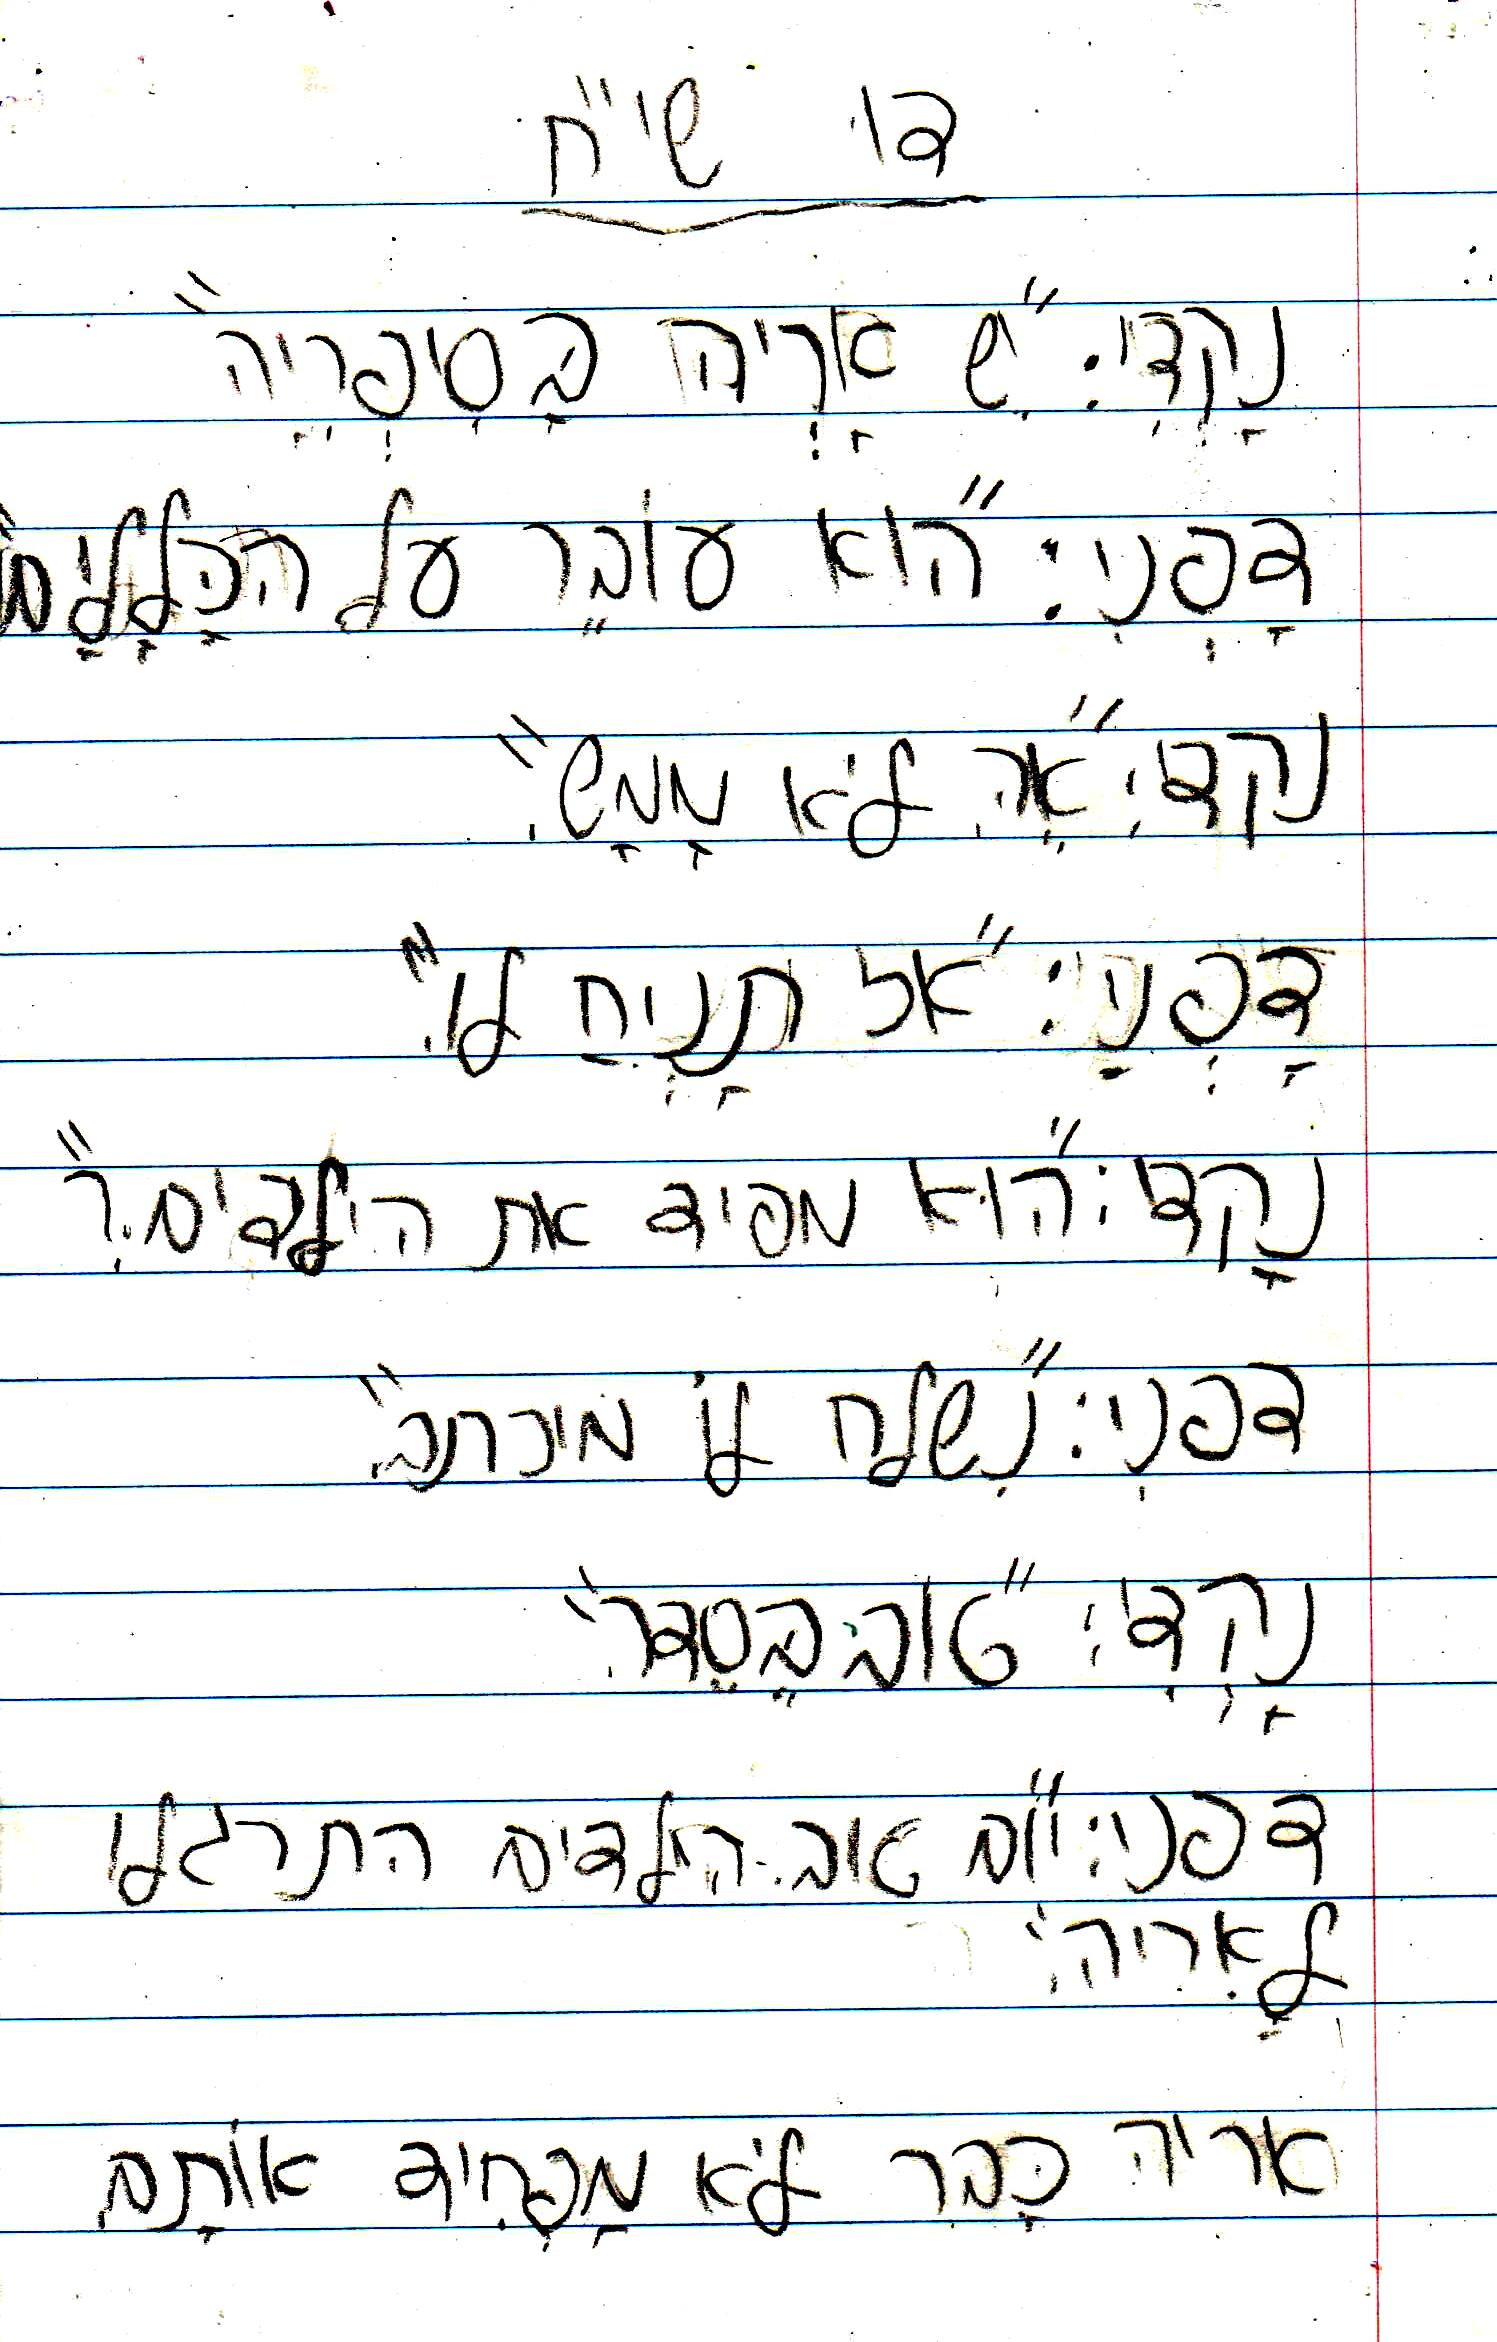 דו שי"ח
נָקְדִי: "יֵשׁ אַרְיֵה בַּסִיפְרִיָה"
דָפְנִי: "הוּא עוֹבֵר עַל הַכְּלָלָים"
נָקְדִי: "אֶה לֹא מַמָשׁ."
דָפְנִי: "אל תָנִיחַ לוֹ."
נָקְדִי: "הוּא מפיד את הילדים.ר"
דפנִי: "נִשלח לוֹ מיכתב."
נָקְדִי: "טוב בֵּסֵדר."
דפני: "יום טוב. הילדים התרגלו
לַאריה."
אריה כְּבר לֹא מַפְחִיד אוֹתָם.